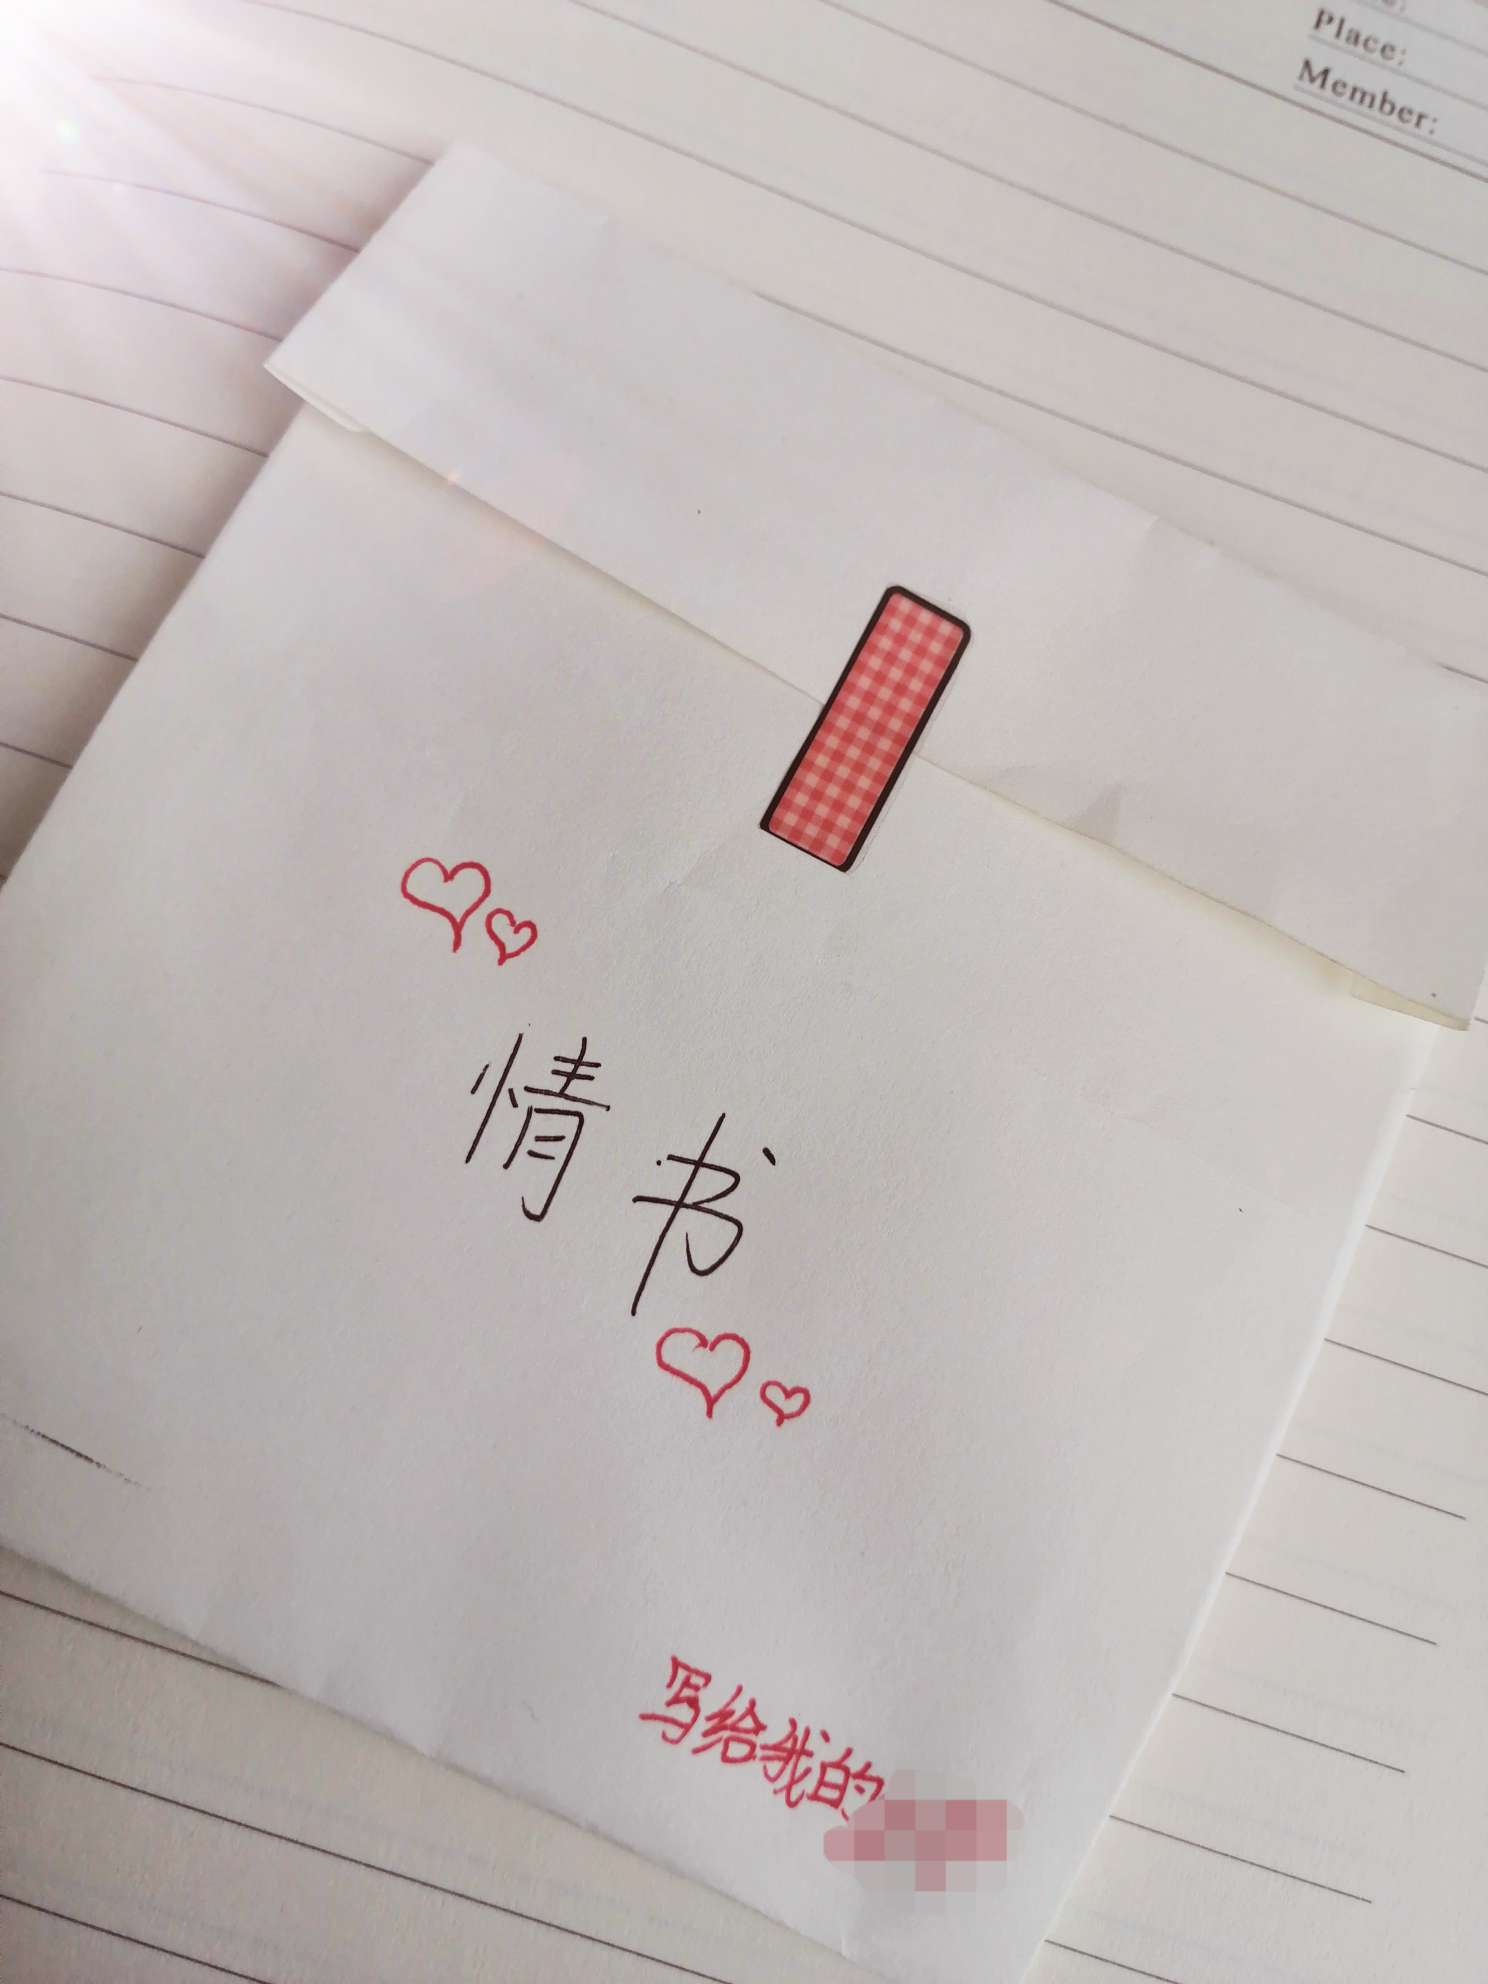 Place:
Member:
情书
写给我的